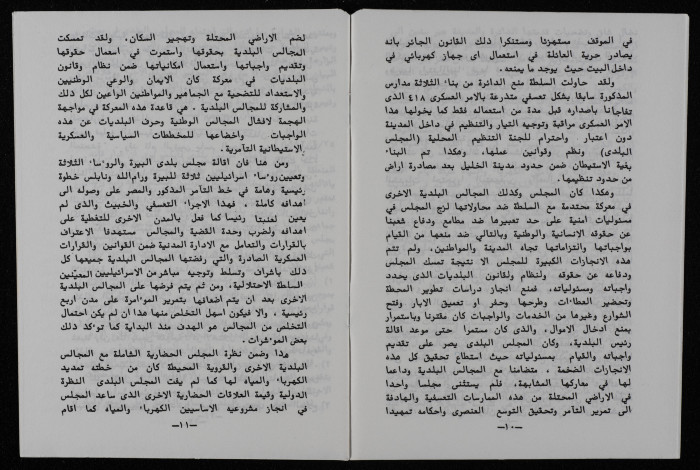 في الموقف مستهزئا ومستنكرا ذلك القانون الجائر بانه
يصادر حرية العائلة في استعمال اى جهاز كهربائي في
داخل البيت حيث يوجد ما يمنعه .
ولقد حاولت السلطة منع الدائرة من بناء الثلاثة مدارس
المذكورة سابقا بشكل تعسفي متذرعة بالامر العسكرى ٤١٨ الذى
تفاجأنا باصداره قبل مدة من استعماله فقط كما يخولها هذا
الامر العسكرى مراقبة وتوجيه التيار والتنظيم في داخل المدينة
دون اعتبار واحترام للجنة التنظيم المحلية (المجلس
البلدى) ونظم وقوانين عملها، وهكذا تم البناء
بغية الاستيطان ضمن حدود مدينة الخليل بعد مصادرة اراض
من حدود تنظيمها.
وهكذا كان المجلس وكذلك المجالس البلدية الاخرى
في معركة محتدمة مع السلطة ضد محاولاتها لزج المجلس في
مسئوليات امنية على حد تعبيرها ضد مطامح ودفاع شعبنا
عن حقوقه الانسانية والوطنية وبالتالي ضد منعها من القيام
بواجباتها والتزاماتها تجاه المدينة والمواطنين، ولم تتم
هذه الانجازات الكبيرة للمجلس الا نتيجة تمسك المجلس
ودفاعه عن حقوقه ولنظام ولقانون البلديات الذى يحدد
واجباته ومسئولياته، فمنع انجاز دراسات تطوير المحطة
وتحضير العطاءات وطرحها وحفر او تعميق الابار وفتح
الشوارع وغيرها من الخدمات والواجبات كان مقترنا وباستمرار
بمنع ادخال الاموال، والذى كان مستمرا حتى موعد اقالة
رئيس البلدية، وكان المجلس البلدى يصر على تقديم
واجباته والقيام بمسئولياته حيث استطاع تحقيق كل هذه
الانجازات الضخمة ، متضامنا مع المجالس البلدية وداعما
لها في معاركها المشابهة، فلم يستثنى مجلسا واحدا
في الاراضي المحتلة من هذه الممارسات التعسفية والهادفة
الى تمرير التآمر وتحقيق التوسع العنصرى واحكامه تمهيدا
—١٠—
لضم الاراضي المحتلة وتهجير السكان، ولقد تمسكت
المجالس البلدية بحقوقها واستمرت في استعمال حقوقها
وتقديم واجباتها واستعمال امكانياتها ضمن نظام وقانون
البلديات في معركة كان الايمان والوعي الوطنيين
والاستعداد للتضحية مع الجماهير والمواطنين الواعين لكل ذلك
والمشاركة للمجالس البلدية . هي قاعدة هذه المعركة في مواجهة
الهجمة لافشال المجالس الوطنية وحرف البلديات عن هذه
الواجبات واخضاعها للمخططات السياسية والعسكرية
والاستيطانية التآمرية.
ومن هنا فان اقالة مجلس بلدى البيرة والروءساء الثلاثة
وتعيين روءساء اسرائيليين ثلاثة للبيرة ورام الله ونابلس خطوة
رئيسية وهامة في خط التآمر المذكور والمصر على وصوله الى
اهدافه كاملة ، فهذا الاجراء التعسفي والخبيث والذى لم
يعين لعنبتا رئيسا كما فعل بالمدن الاخرى للتغطية على
اهدافه ولضرب وحدة القضية والمجالس مستهدفا الاعتراف
بالقرارات والتعامل مع الادارة المدنية ضمن القوانين والقرارات
العسكرية الصادرة والتي رفضتها المجالس البلدية جميعها كل
ذلك باشراف وتسلط وتوجيه مباشر من الاسرائيليين المعينين
السلطة الاحتلالية، ومن ثم يتم فرضها على المجالس البلدية
الاخرى بعد ان يتم اضعافها بتمرير الموءامرة على مدن اربع
رئيسية ، والا فيكون اسهل التخلص منها هذا ان لم يكن احتمال
التخلص من المجالس هو الهدف منذ البداية كما توءكد ذلك
بعض الموءشرات .
هذا وضمن نظرة المجلس الحضارية الشاملة مع المجالس
البلدية الاخرى والقروية المحيطة كان من خطته تمديد
الكهرباء والمياه لها كما لم يفت المجلس البلدى النظرة
الدولية وقيمة العلاقات الحضارية الاخرى الذى ساعد المجلس
في انجاز مشروعيه الاساسيين الكهرباء والمياه كما اقام
—١١—